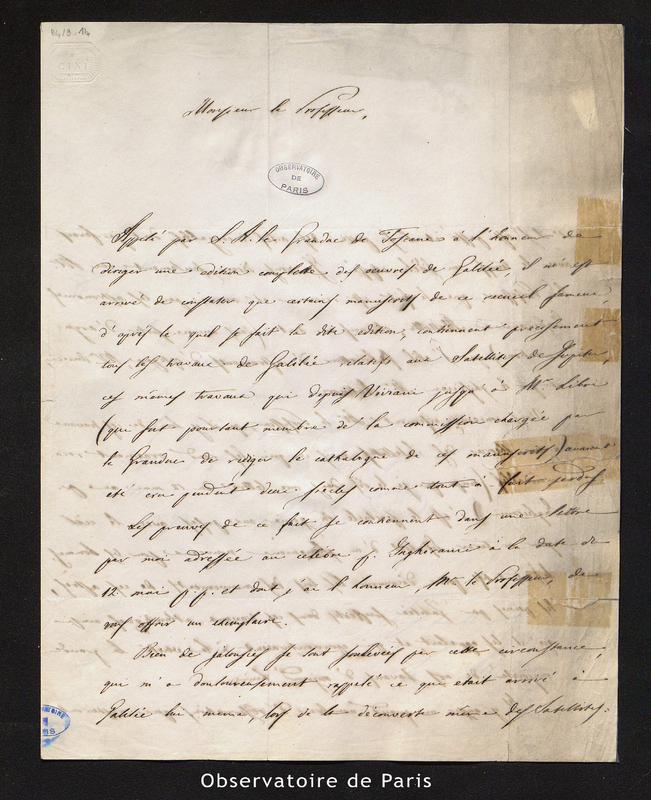 44/3.14
Monsieur le Professeur,
OBSERVATOIRE
DE
PARIS
Appelé par S. A. le Granduc de Toscane à l'honneur de
diriger une edition complette des oeuvres de Galilée, il m'est
arrivé de constater que certains manuscrits de ce recueil fameux,
d'après le quel se fait la dite edition, contiennent précisement
tous les travaux de Galilée relatifs aux Satellites de Jupiter,
ces mêmes travaux qui depuis Viviani jusqu'à Mr. Libri
(que fut pourtant membre de la commission chargée par
le Granduc de rediger le cathalogue de ces manuscrits) avaient
été cru pendant deux siècles comme tout à fait perdus
Les preuves de ce fait se contiennent dans une lettre
par moi adressée au celebre p. Inghirami à la date de
12 mai p. p. et dont j'ai l'honneur, Mr. le Professeur, de
vous offrir un exemplaire.
Bien de jalousies se sont soulevées par cette circonstance,
qui m'a douloureusement rappelé ce que etait arrivé à
Galilée lui meme, lors de la découverte meme des Satellites:
Observatoire de Paris